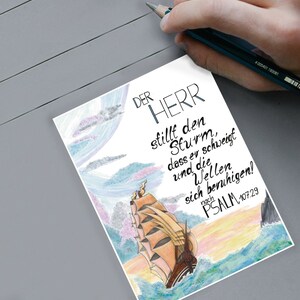 DER
HERR
stillt den
Sturm,
dass er schweigt
und die
Wellen
sich beruhigen!
nach
PSALM 107.29